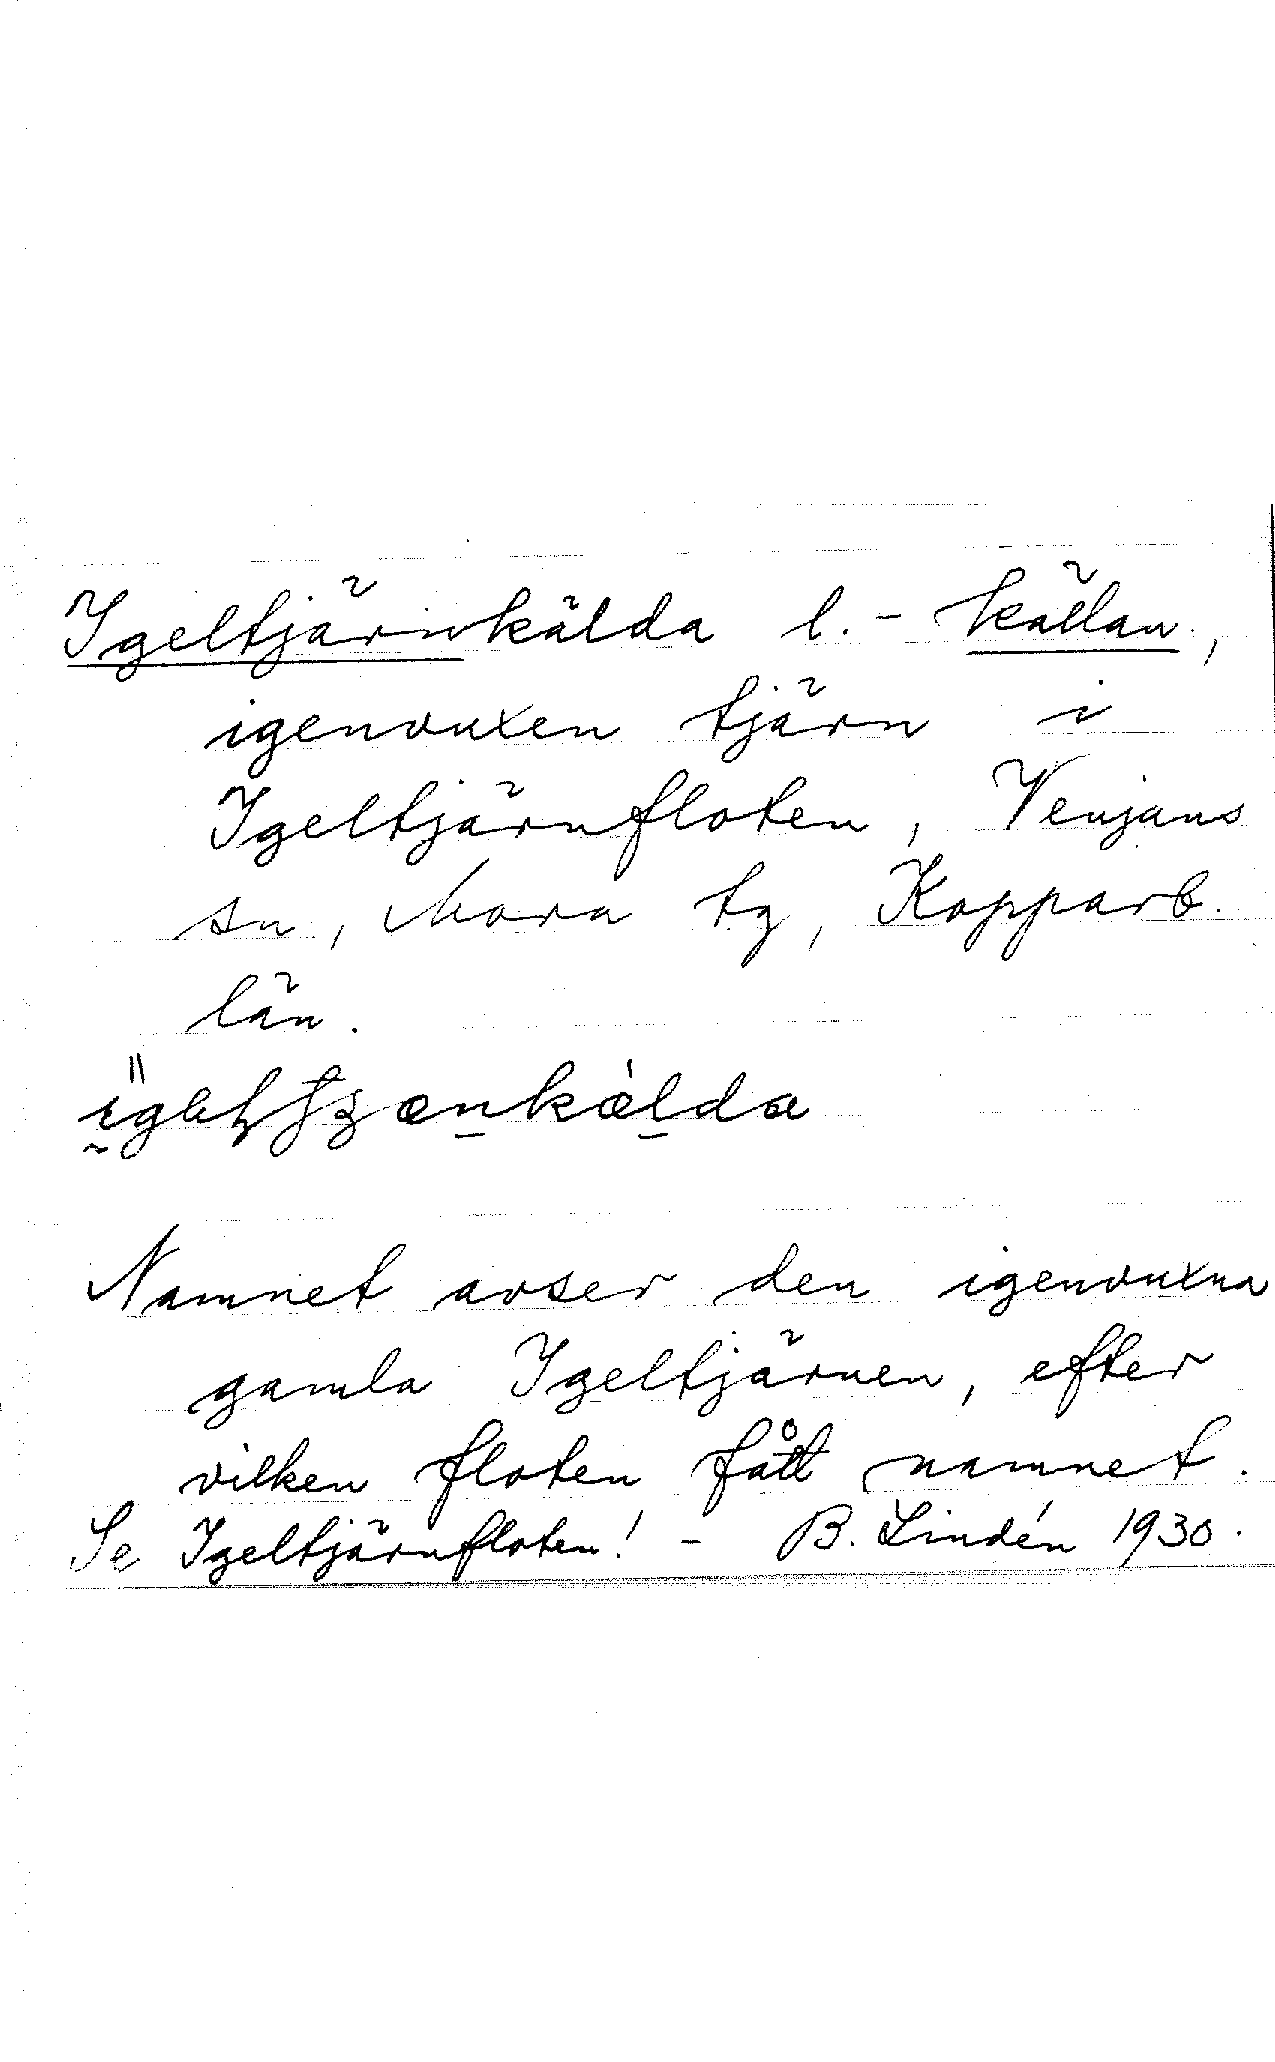 Igeltjärnkälda l. - källan,
igenvuxen tjärn i
Igeltjärnfloten, Venjans
sn, Mora tg, Kopparb.
län.
Namnet avser den igenvuxna
gamla Igeltjärnen, efter
vilken floten fått namnet.
Se Igeltjärnfloten! - B. Lindén 1930.